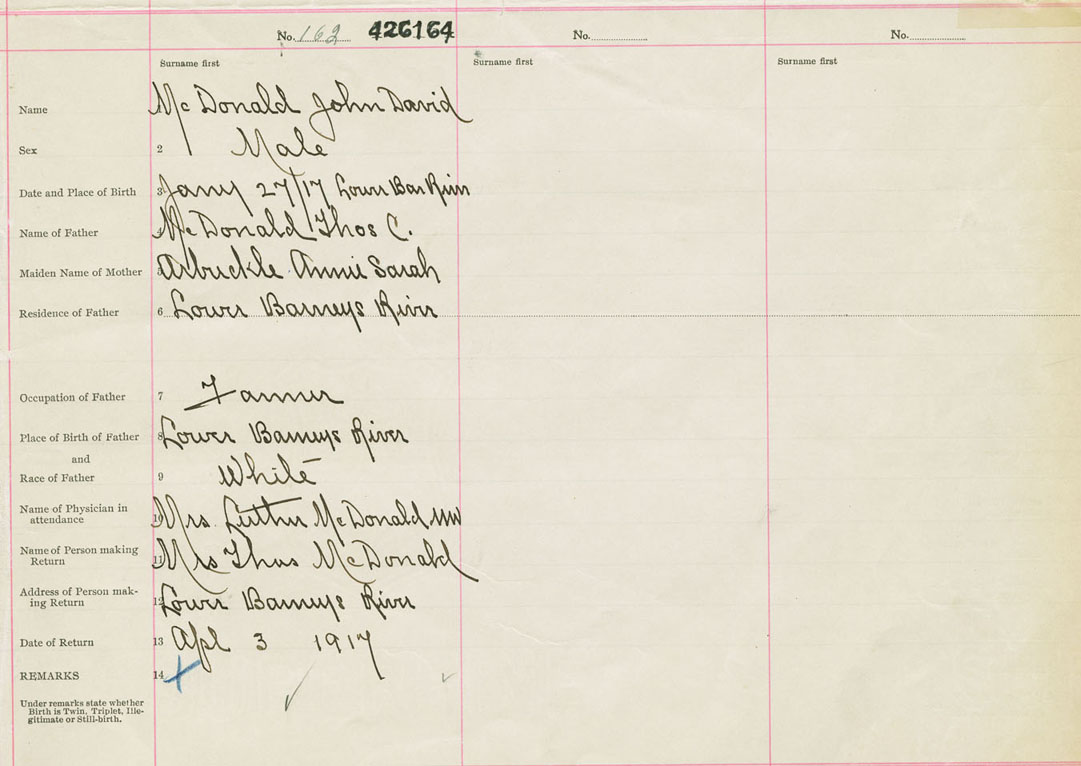 No. 162 426164 No. No.
Surname first Surname first Surname first
Name 1 McDonald John David
Sex 2 Male
Date and Place of Birth 3 Jany 27/17 Lower Bar River
Name of Father 4 McDonald Thos C.
Maiden Name of Mother 5 Arbuckle Annie Sarah
Residence of Father 6 Lower Barneys River
Occupation of Father 7 Farmer
Place of Birth of Father 8 Lower Barneys River
and
Race of Father 9 White
Name of Physician in
attendance 10 Mrs. Luther McDonald MW
Name of Person making
Return 11 Mrs Thos McDonald
Address of Person mak-
ing Return 12 Lower Barneys River
Date of Return 13 Apl 3 1917
REMARKS 14
Under remarks state whether
Birth is Twin, Triplet, Ille-
gitimate or Still-birth.